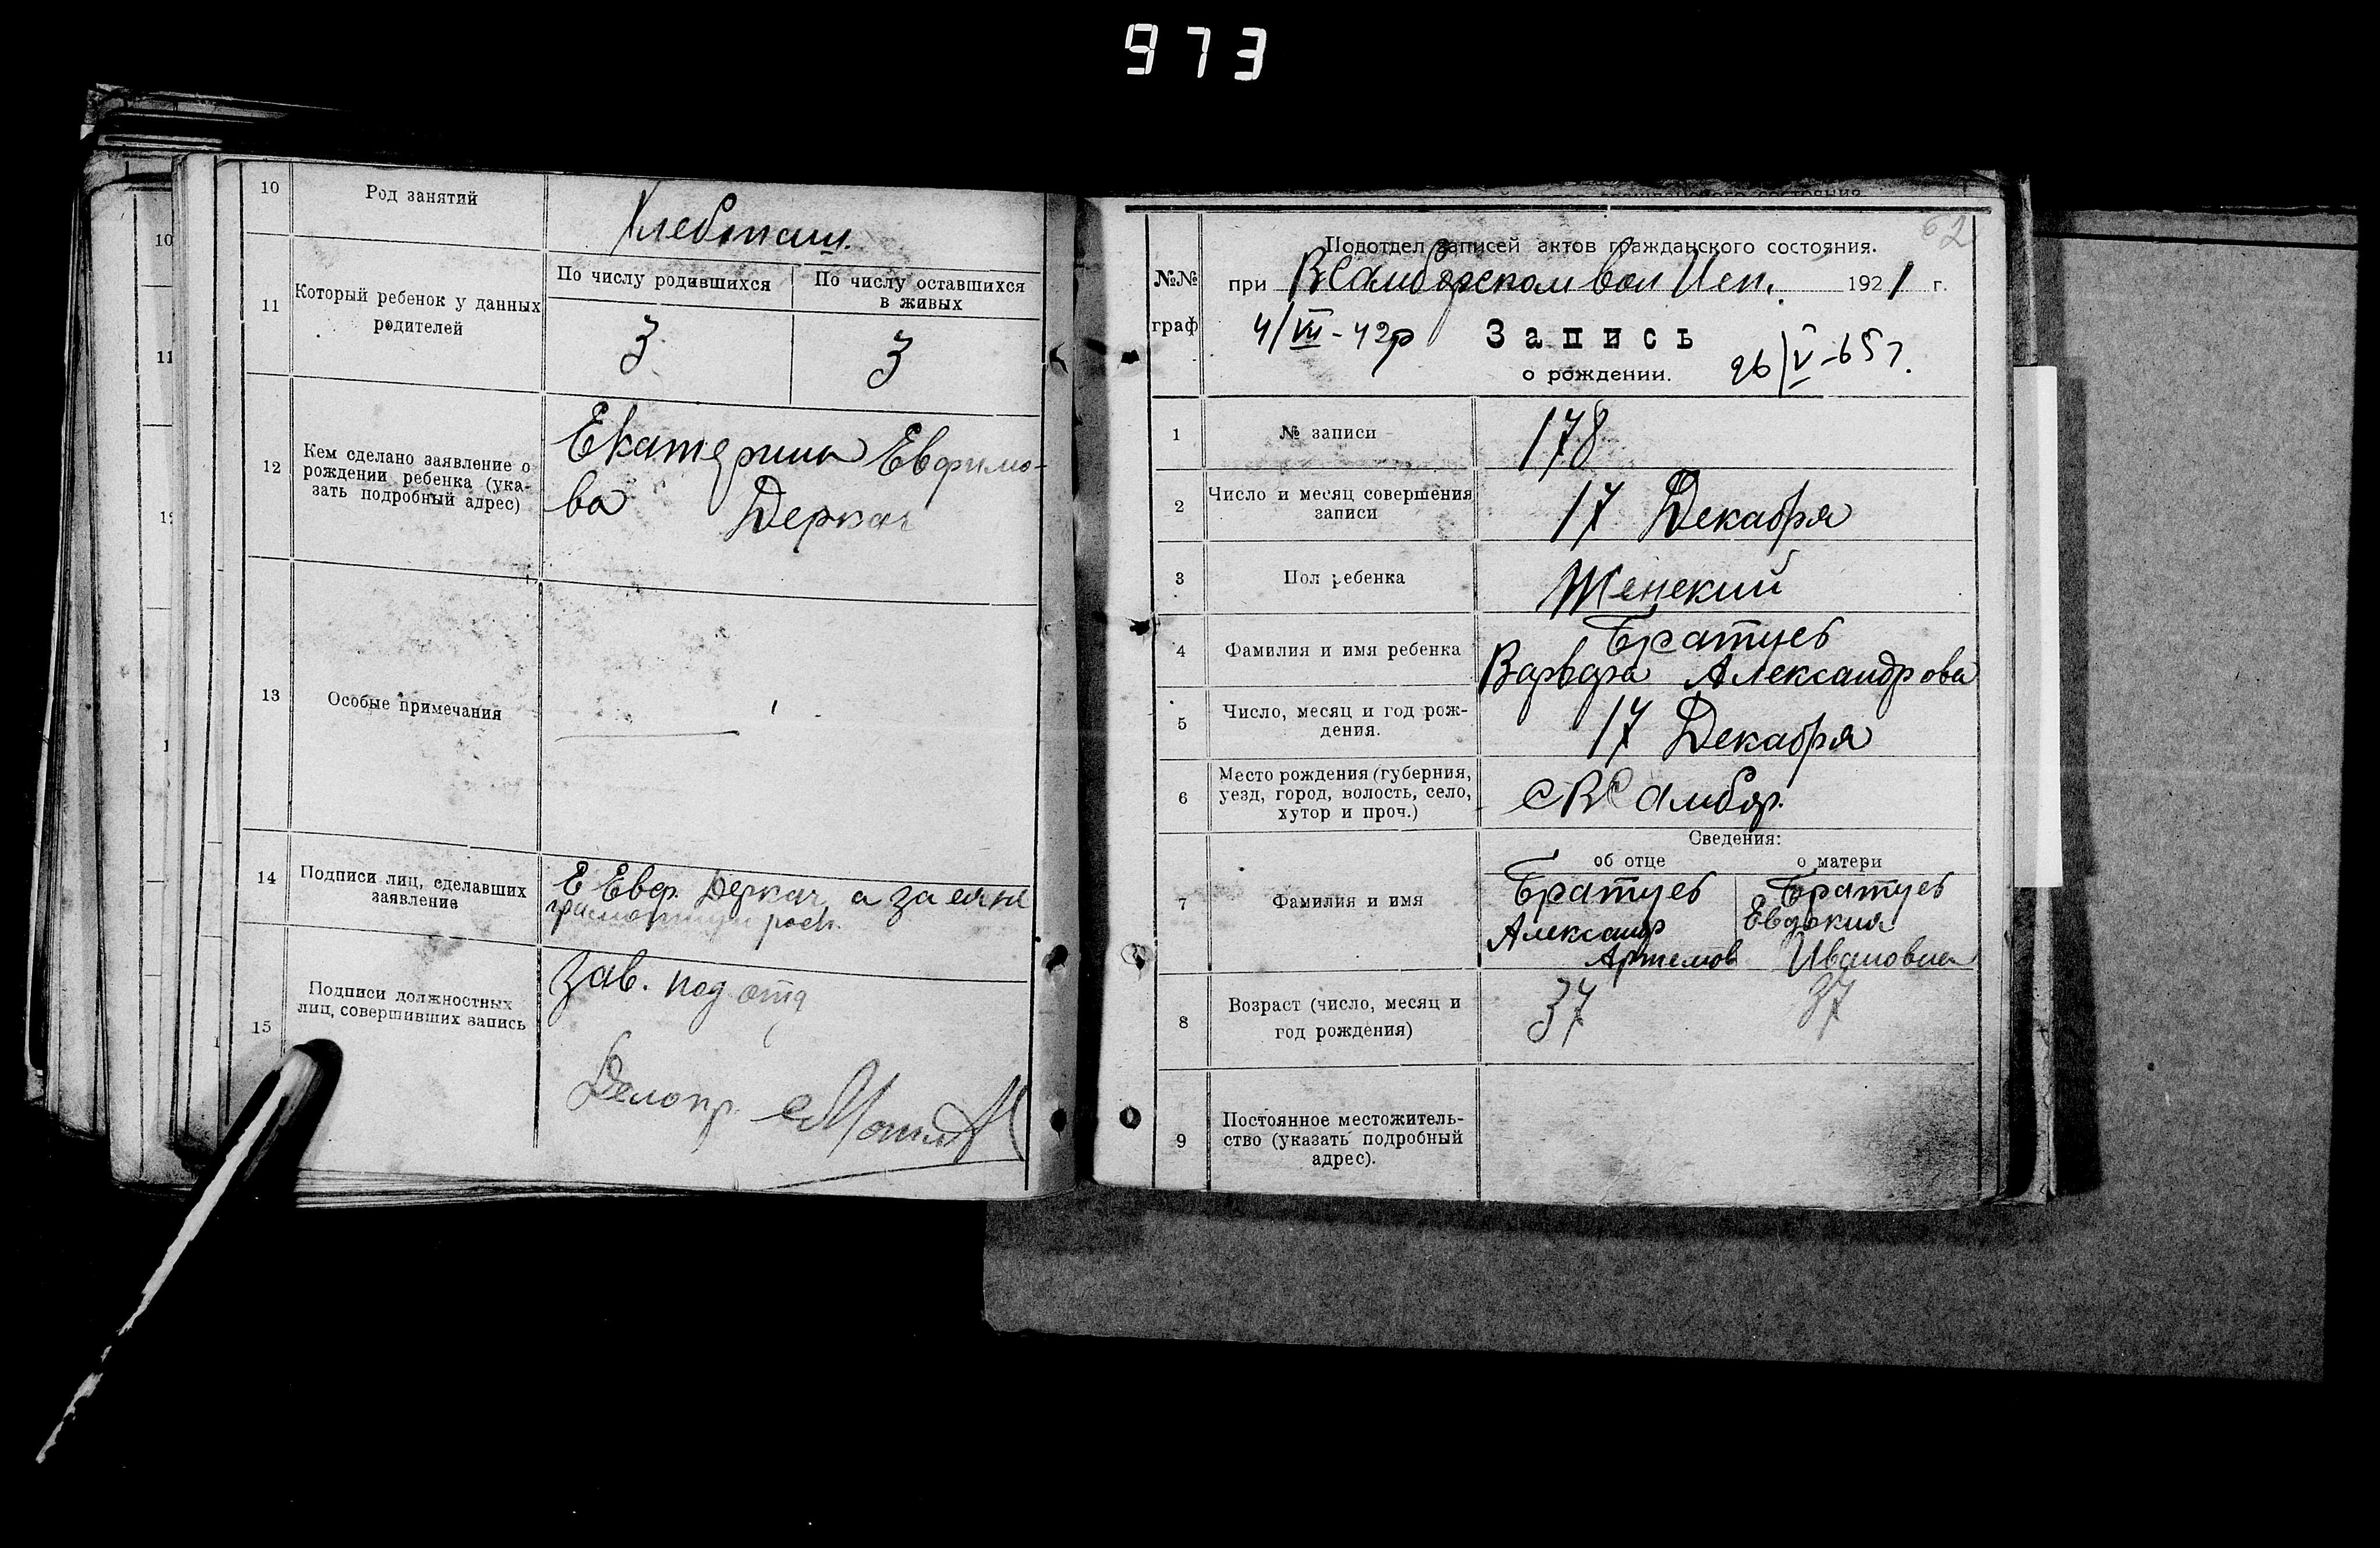 973
10 Род занятий
Хлебопаш.
11 Который ребенок у данных родителей
По числу родившихся
По числу оставшихся
в живых
3 3
12 Кем сделано заявление о
рождении ребенка (ука-
зать подробный адрес)
Екатерина Евфимо-
ва Деркач
13 Особые примечания
14 Подписи лиц, сделавших
заявление
Е Евф. Деркач а за ея не
15 Подписи должностных
лиц, совершивших запись
Зав. под отд
Делопр.
10
11
62
Подотдел записей актов гражданского состояния.
№№
граф
при ВСамборском вол Исп. 1921 г.
4/VII-42р
Запись
26/V-65г.
о рождении.
1 № записи 178
2 Число и месяц совершения
записи
17 Декабря
3 Пол ребенка Женский
4 Фамилия и имя ребенка
Братцев
Варвара Александрова
5 Число, месяц и год рож-
дения.
17 Декабря
6 Место рождения (губерния,
уезд, город, волость, село,
хутор и проч.)
с ВСамбор.
Сведения:
об отце о матери
7 Фамилия и имя
Братцев Братцев
Александр Евдокия
Артемов Ивановна
8 Возраст (число, месяц и
год рождения)
37 37
9 Постоянное местожитель-
ство (указать подробный
адрес).